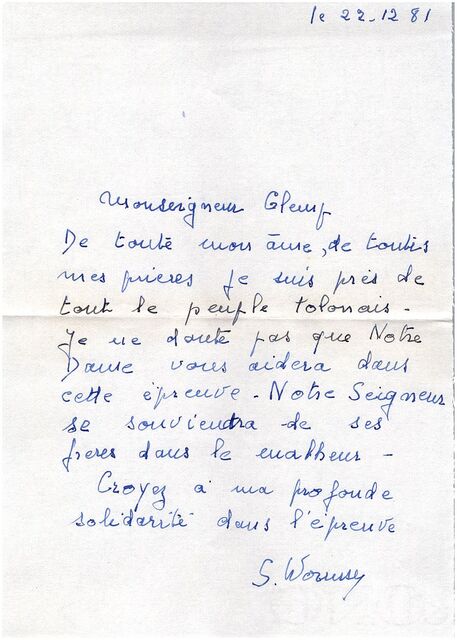 le 22-12 81
Monseigneur Glemp
De toute mon âme, de toutes
mes prières je suis près de
tout le peuple Polonais -
Je ne doute pas que Notre
Dame vous aidera dans
cette épreuve - Notre Seigneur
se souviendra de ses
frères dans le malheur -
Croyez à ma profonde
solidarité dans l'épreuve
S.